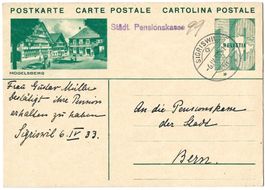 POSTKARTE CARTE POSTALE CARTOLINA POSTALE
Städt. Pensionskasse 99
SIGRISWIL
HELVETIA
MOGELSBERG
Frau Gustav Müller
bestätigt ihre Pension
erhalten zu haben
Sigriswil 6 IV 33.
An die Pensionskasse
der Stadt
Bern